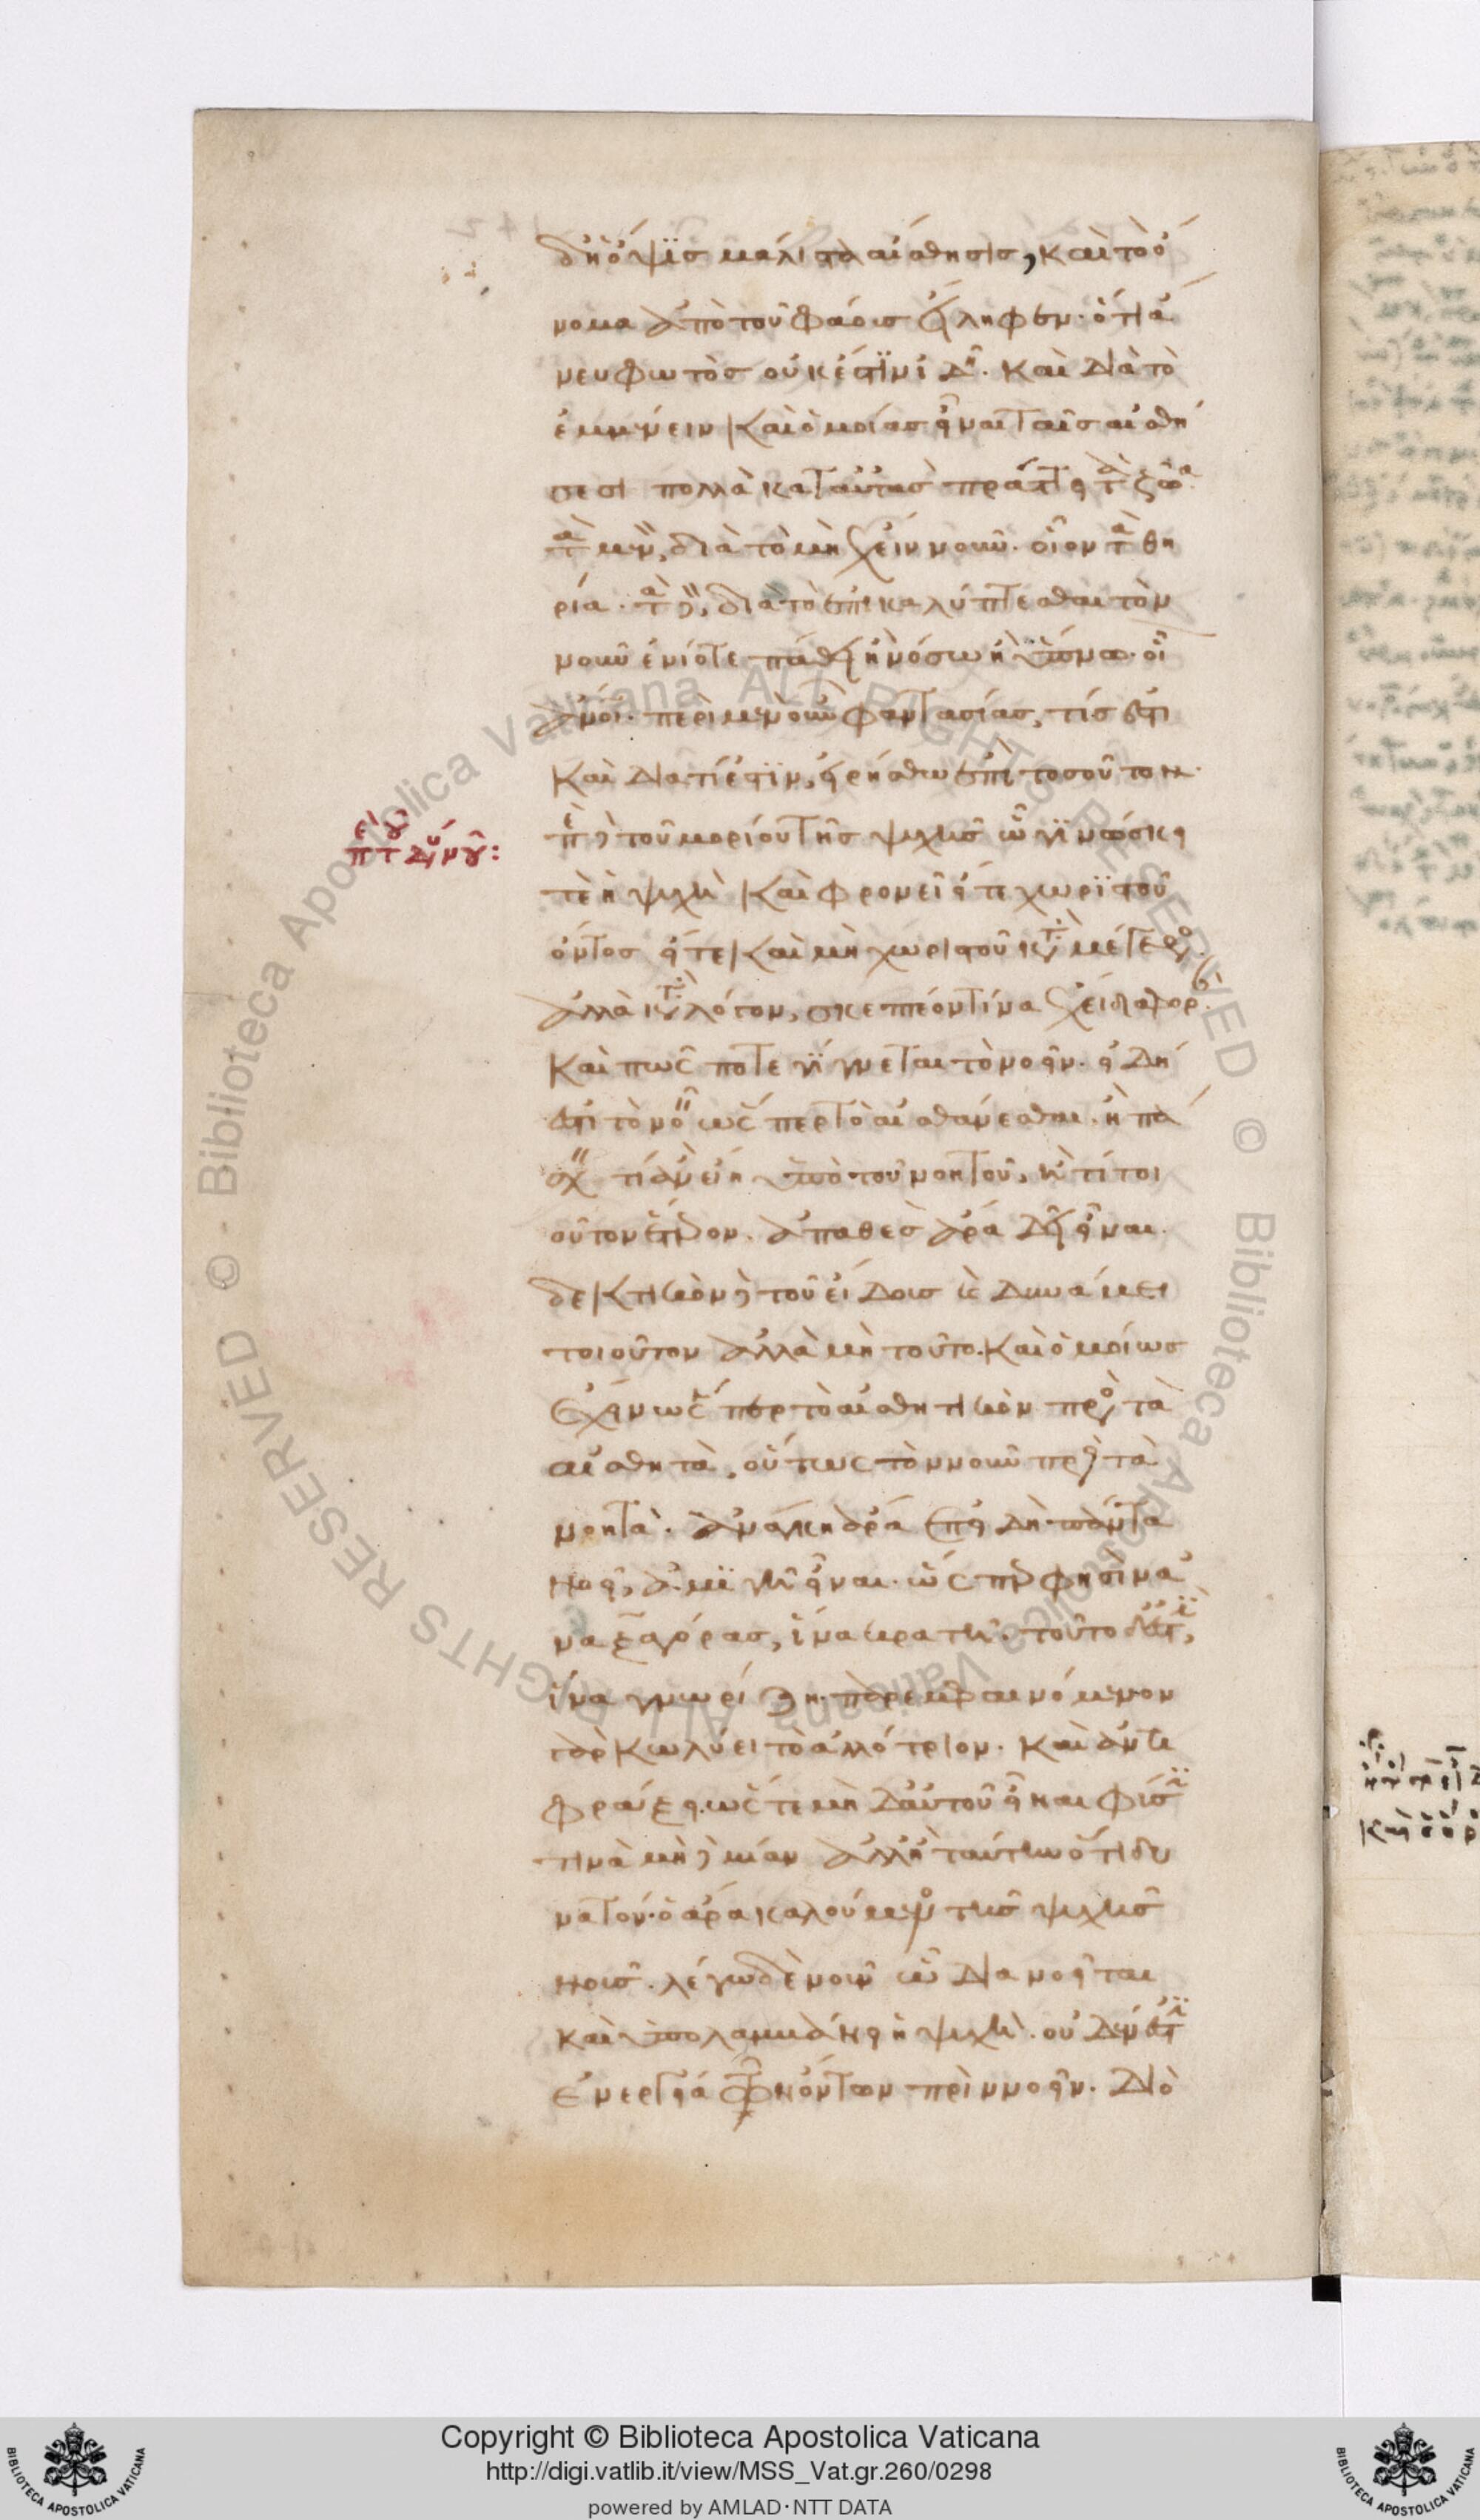 δὴ ὄψις μάλιστα αἴσθησις, καὶ τὸ ὄ
νομα ἀπὸ τοῦ φάους εἴληφεν. ὅτι ἄ
νευ φωτὸς οὐκ ἔστιν ἰδεῖν. καὶ διὰ τὸ
ἐμμένειν καὶ ὁμοίας εἶναι ταῖς αἰσθή
σεσι πολλὰ κατ' αὐτὰς πράττει τὰ ζῶα.
τὰ μὲν, διὰ τὸ μὴ ἔχειν νοῦν. οἷον τὰ θη
ρία. τὰ δὲ, διὰ τὸ ἐπικαλύπτεσθαι τὸν
νοῦν ἐνίοτε πάθει ἢ νόσω ἢ ὕπνω. οἷον οἱ
ἄνοι. περὶ μὲν οὖν φαντασίας, τίς ἐστι
καὶ διὰ τί ἐστιν, εἰρήσθω ἐπὶ τοσοῦτον.
περὶ δὲ τοῦ μορίου τῆς ψυχῆς ὧ γινώσκει
τε ἡ ψυχὴ καὶ φρονεῖ εἴτε χωριστοῦ
ὄντος εἴτε καὶ μὴ χωριστοῦ κατὰ μέγεθος
ἀλλὰ κατὰ λόγον, σκεπτέον τίνα ἔχει διαφορ.
καὶ πῶς ποτε γίγνεται τὸ νοεῖν. εἰ δή
ἐστι τὸ νοεῖν ὥσπερ τὸ αἰσθάνεσθαι. ἢ πά
σχειν τι ἂν εἴη ὑπὸ τοῦ νοητοῦ, ἤ τι τοι
οῦτον ἕτερον. ἀπαθὲς ἄρα δεῖ εἶναι.
δεκτικὸν δὲ τοῦ εἴδους καὶ δυνάμει
τοιοῦτον ἀλλὰ μὴ τοῦτο. καὶ ὁμοίως
ἔχειν ὥσπερ τὸ αἰσθητικὸν πρὸς τὰ
αἰσθητὰ, οὕτως τὸν νοῦν πρὸς τὰ
νοητὰ. ἀνάγκη ἄρα ἐπεὶ δὴ πάντα
νοεῖ, ἀμιγῆ εἶναι. ὥσπερ φησὶν ἀ
ναξαγόρας, ἵνα κρατῆ. τοῦτο δ' ἐστὶν,
ἵνα γνωρίζη. παρεμφαινόμενον
γὰρ κωλύει τὸ ἀλλότριον. καὶ ἀντι
φράξει. ὥστε μὴ δ' αὐτοῦ εἶναι φύσιν
τινὰ μὴ δὲ μίαν ἀλλ' ἢ ταύτην ὅτι δυ
νατόν. ὁ ἄρα καλούμενος τῆς ψυχῆς
νοῦς. λέγω δὲ νοῦν ὧ διανοεῖται
καὶ ὑπολαμβάνει ἡ ψυχὴ. οὐδέν ἐστιν
ἐνεργεία τῶν ὄντων πρὶν νοεῖν. διὸ
Copyright © Biblioteca Apostolica Vaticana
http://digi.vatlib.it/view/MSS_Vat.gr.260/0298
powered by AMLAD·NTT DATA